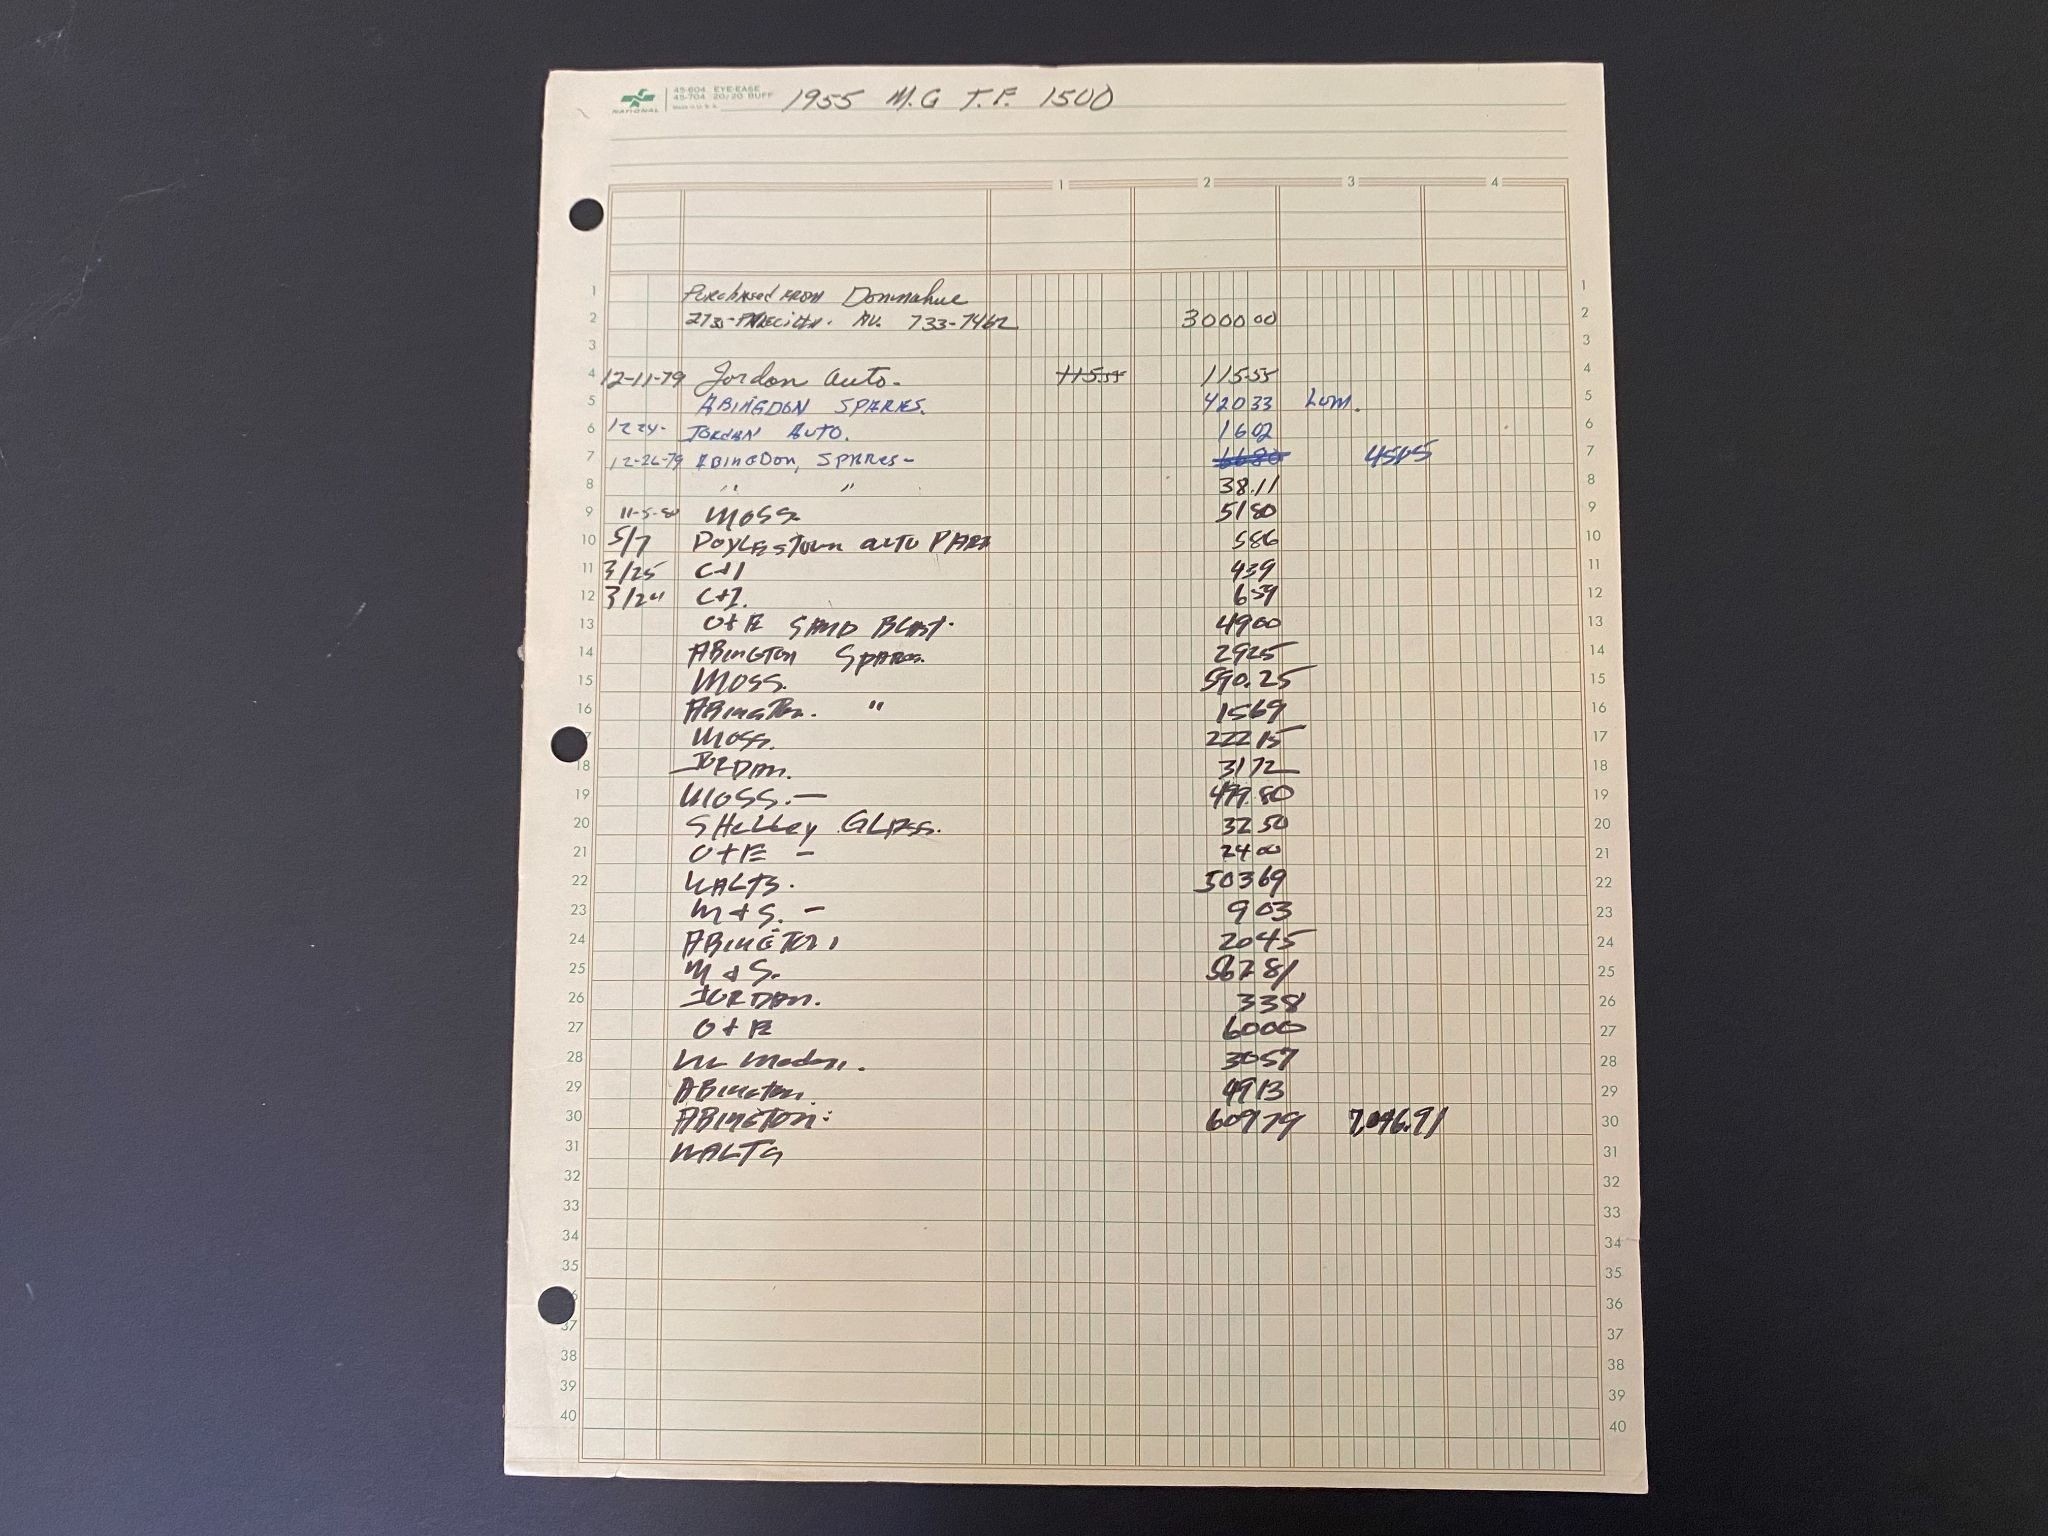 NATIONAL 45-604 EYE-EASE
45-704 20/20 BUFF
MADE IN U.S.A.
1955 M.G T.F. 1500
1 2 3 4
1 Purchased FROM Donnahue 1
2 AV. 733-7462 3000 00 2
3 3
4 12-11-79 Jordon Auto- 115.55 115.55 4
5 ABINGDON SPARES. 420 33 5
6 12 24- JORDAN AUTO. 16 02 6
7 12-26-79 ABINGDON, SPARES- 66 80 7
8 " " 38.11 8
9 11-5-80 MOSS 51 80 9
10 5/7 DOYLESTOWN AUTO PART 5 86 10
11 3/25 C+I 4 39 11
12 C+I. 6 59 12
13 O+E SAND BLAST. 49 00 13
14 ABINGTON SPARES. 29 25 14
15 MOSS. 590.25 15
16 ABINGTON. " 15 69 16
17 MOSS. 222 15 17
18 JORDAN. 31 72 18
19 MOSS.— 499.80 19
20 SHELLEY GLASS. 32 50 20
21 O+E - 24 00 21
22 WALTS. 503 69 22
23 M+S. - 9 03 23
24 ABINGTON 20 45 24
25 M+S. 567 81 25
26 JORDAN. 3 38 26
27 O+E 60 00 27
28 30 57 28
29 ABINGTON. 49 13 29
30 ABINGTON: 609 79 7,046.91 30
31 WALTS 31
32 32
33 33
34 34
35 35
36
37 37
38 38
39 39
40 40